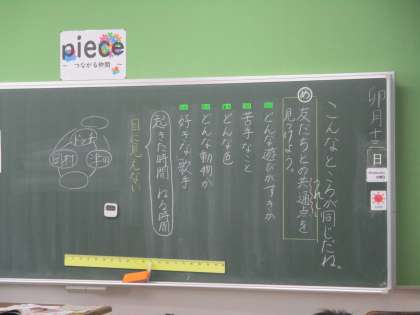 piece
つながる仲間
卯月十三日
こんなところが同じだね。
め 友だちとの共通点を
見つけよう。
どんな遊びがすきか
苦手なこと
どんな色
どんな動物が
好きな歌手
起きた時間 ねる時間
目に見えない